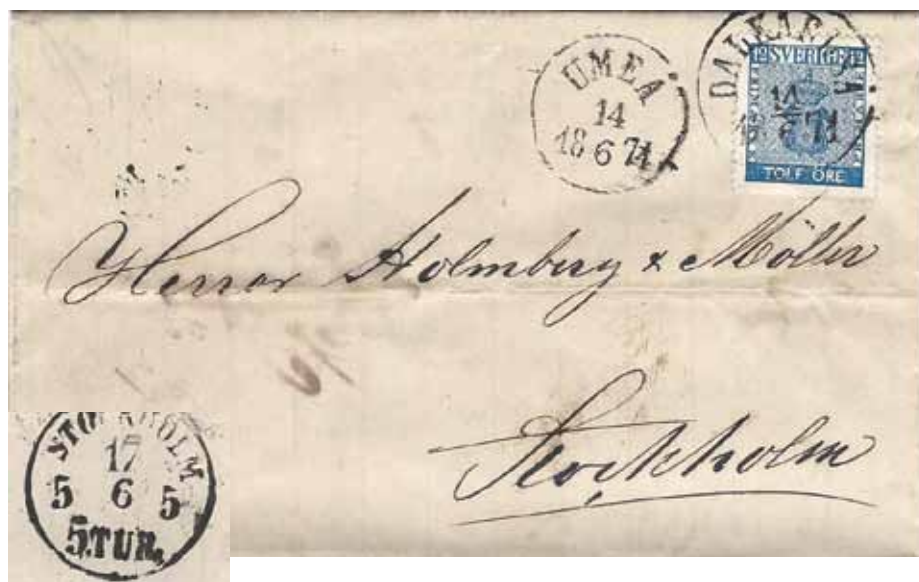 UMEÅ
14
18 6 71
DALKARLSÅ
14
18 6 71
12 SVERIGE 12
TOLF ÖRE
Herrar Holmberg & Möller
Stockholm
STOCKHOLM
17
5 6 5
5.TUR.